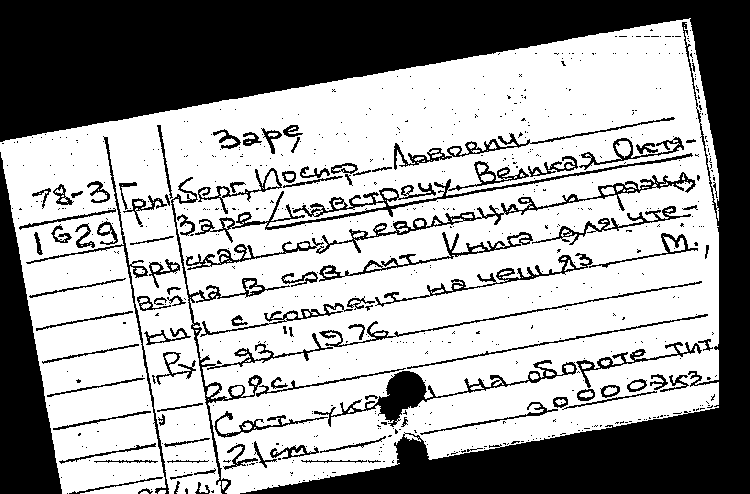 Заре,
78-3 Гринберг, Иосиф Львович.
1629 Заре /навстречу. Великая Октя-
брьская соц. революция и гражд.
война в сов. лит. Книга для чте-
ния с коммент. на чеш. яз. М.,
"Рус. яз.", 1976.
208с.
Сост. указ. на обороте тит.
21 cm. 30000экз.